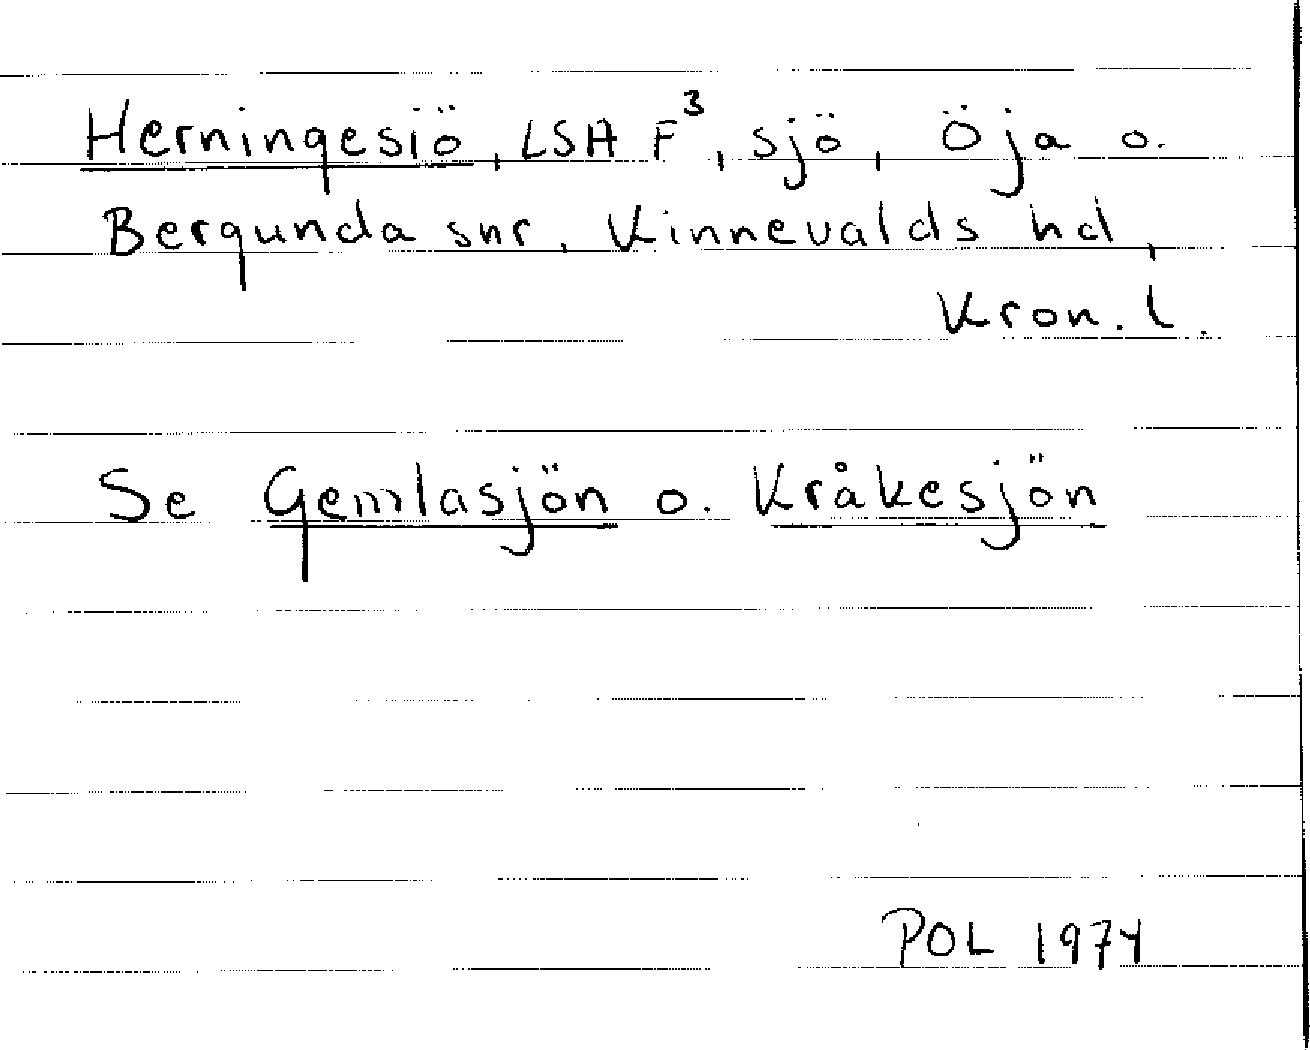 Herningesiö, LSA F³, sjö, Öja o.
Bergunda snr, Kinnevalds hd,
Kron. l.
Se Gemlasjön o. Kråkesjön
POL 1974